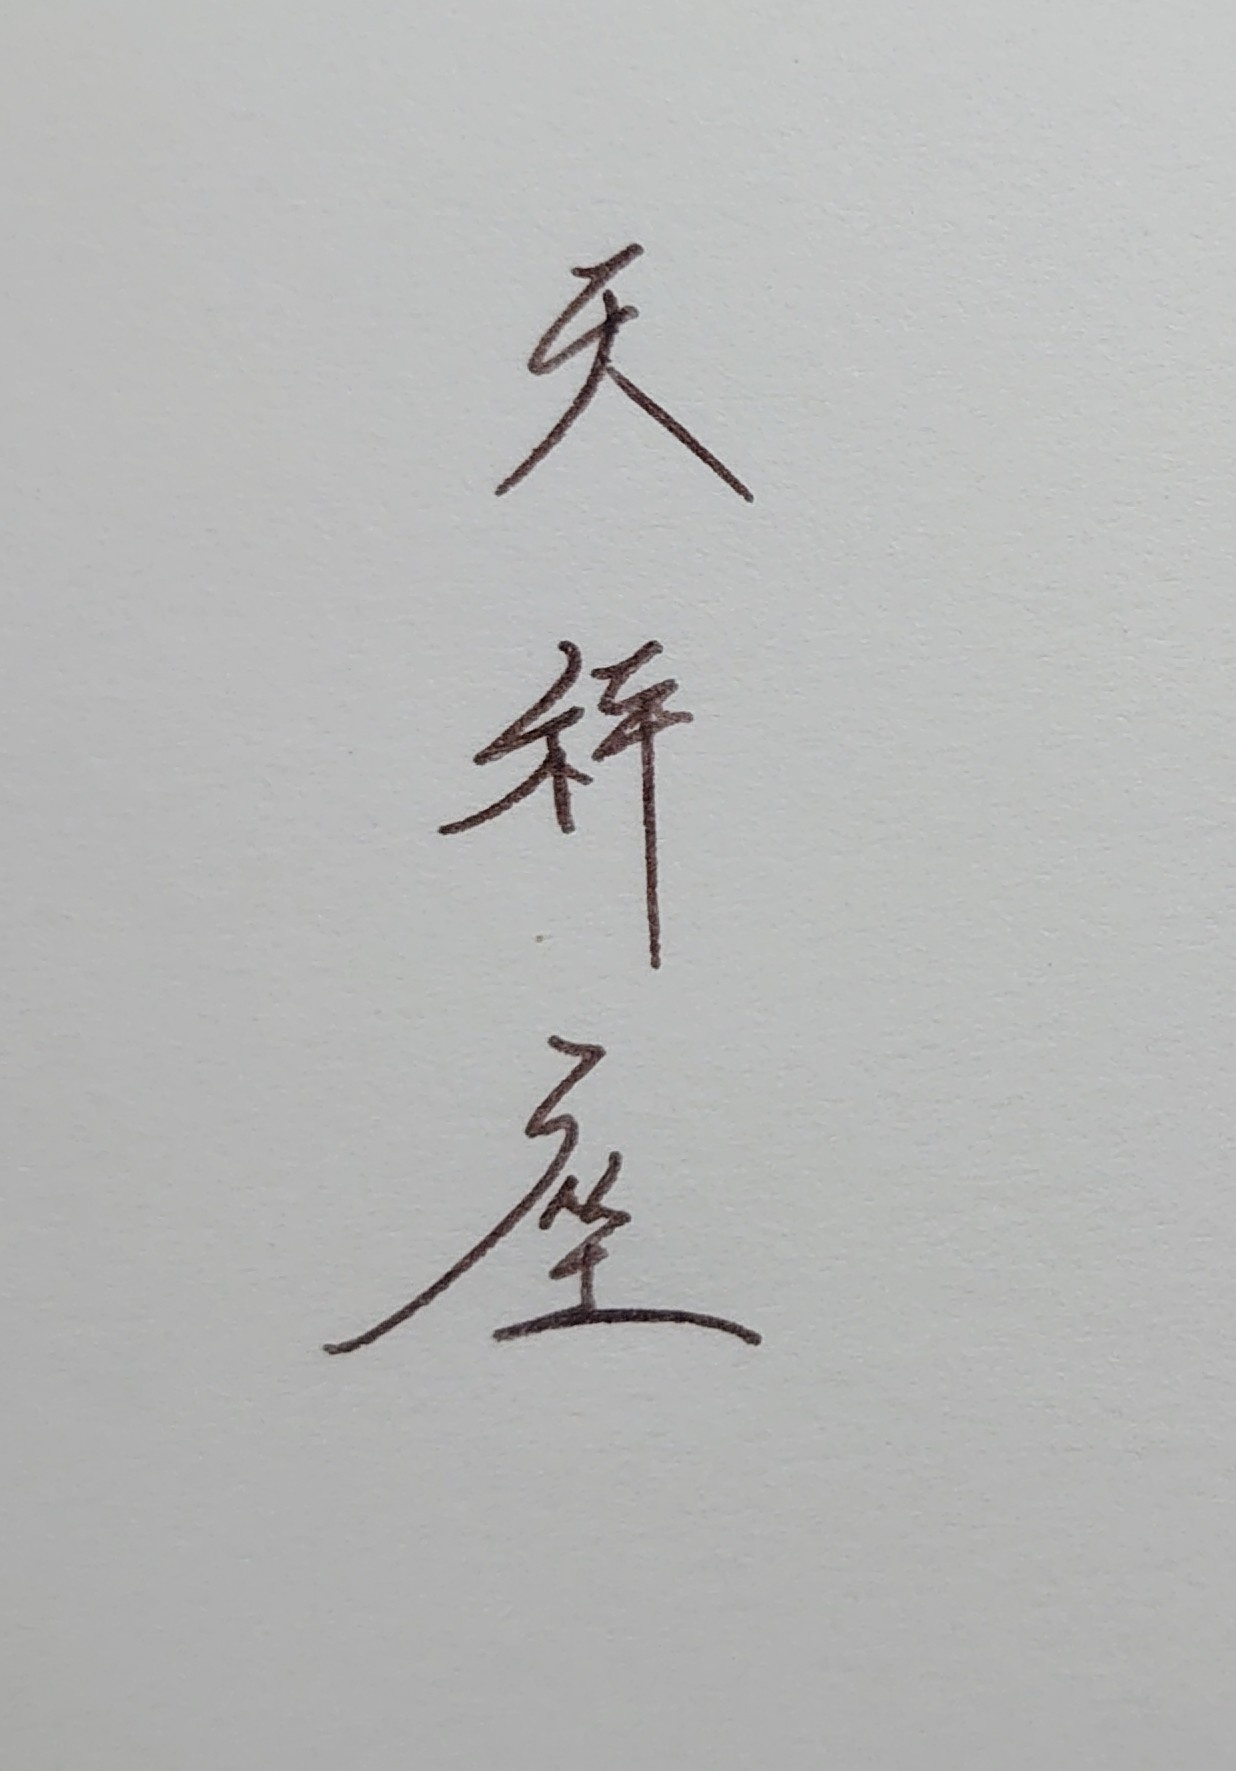 天秤座